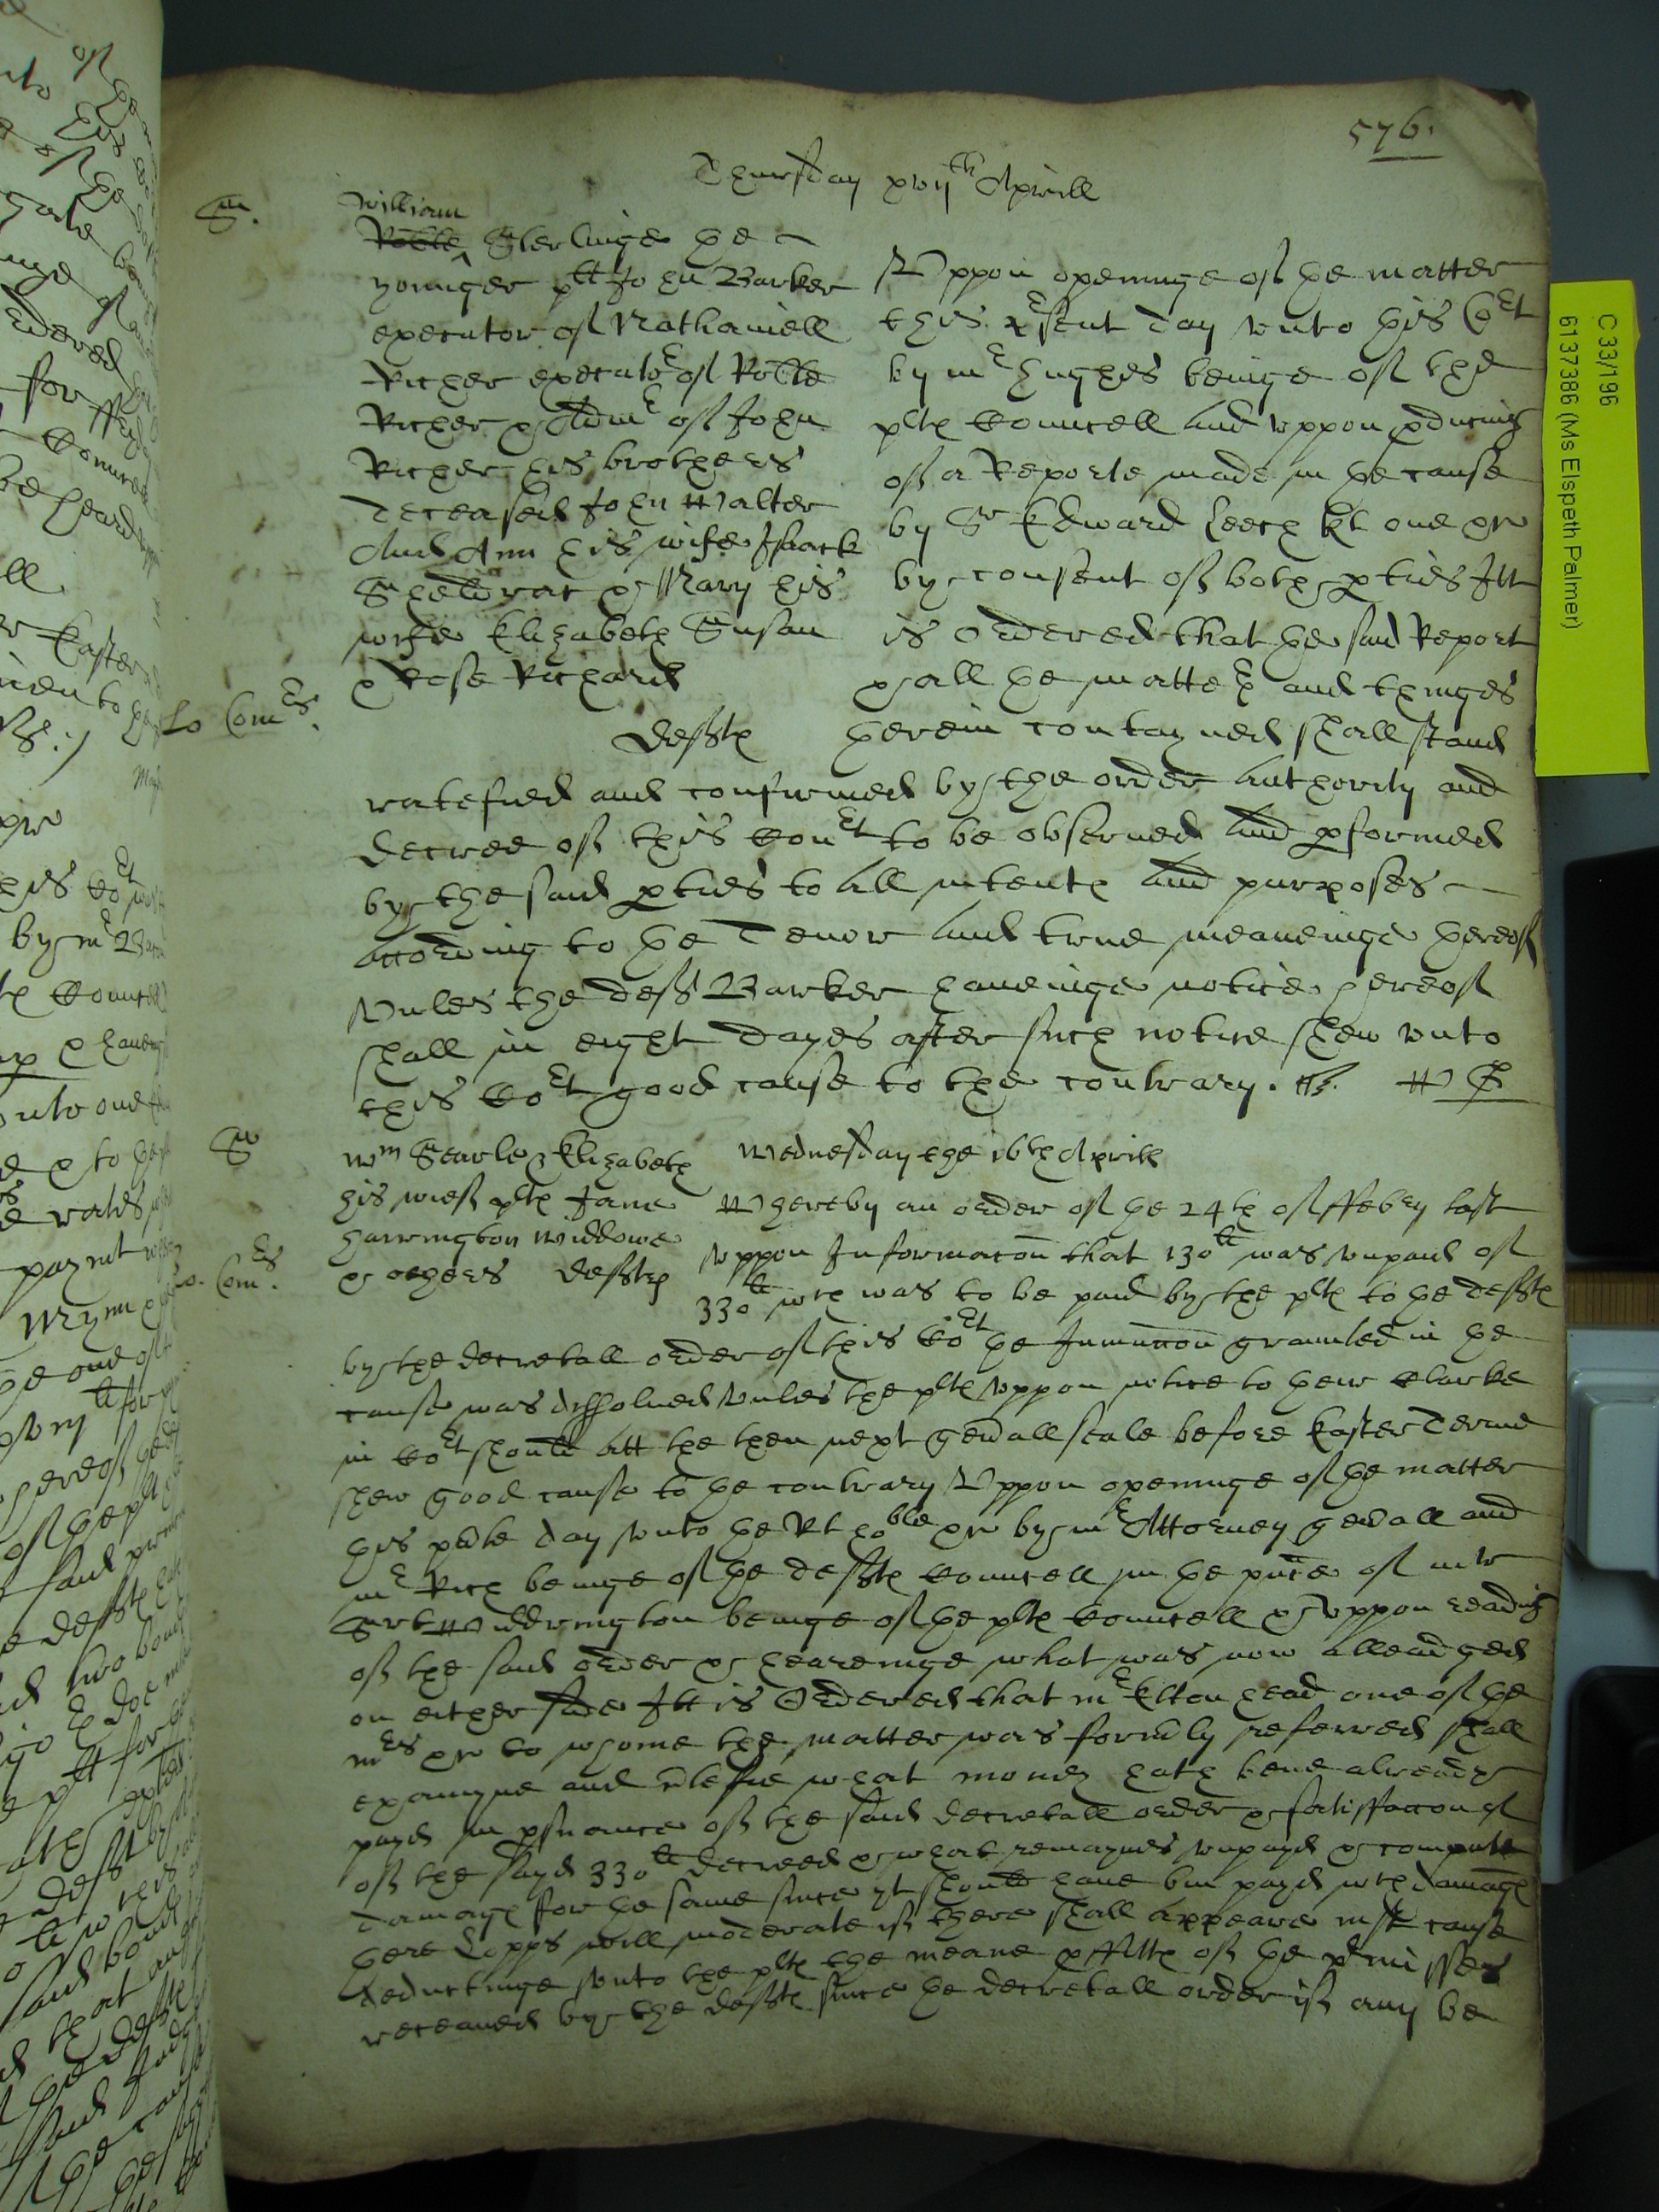 576.
Thursday xviith Aprill
S
William
Robte Sterlinge the
younger plt John Barker
executor of Nathaniell
Richer executor of Robte
Richer & Admr of John
Richer his brothers
deceased John Walter
And Ann his wife Isaack
& Mary his
wife Elizabeth Susan
& Rose Richard
defftes
Lo Comes.
Uppon openinge of the matter
this present day unto this Cort
by mr Hughes beinge of the
pltes Councell And uppon pducing
of a Reporte made in the cause
by Sr Edward Leech kt one &c
by consent of both pties Itt
is Ordered that the said Report
& all the matters and thinges
therein contayned shall stand
ratefied and confirmed by the order Authority and
decree of this Court to be observed And pformed
by the said pties to All intents And purposes
According to the Tenor And true meaneinge thereof
Unles the deft Barker haveinge notice thereof
shall in eight dayes after such notice shew unto
this Cort good cause to the contrary.
S
Wm Searle & Elizabeth
his wief pltes Jane
Harrington widdowe
& others defftes
Comes.
Wednesday the 16th Aprill
Whereby an order of the 24th of ffebry last
uppon Informacon that 130li was unpaid of
330li wch was to be paid by the pltes to the defftes
by the decretall order of this Cort the Iniunccon graunted in the
cause was dissolved Unles the pltes uppon notice to their Clarke
in Cort should Att the then next genall seale before Easter Terme
shew good cause to the contrary Uppon openinge of the matter
this pnte day unto the Rt hoble &c by mr Attorney genall and
mr Rich beinge of the defftes Councell in the pnce of mr
Widdrington beinge of the pltes Councell & uppon reading
of the said order & heareinge what was now Alleadged
on either side Itt is Ordered that mr Elton head one of the
mrs &c to whome the matter was formly referred shall
examyne and certefie what money hath bene already
payd in psuance of the said decretall order & satisffaccon
of the sayd 330li decreed & what remaynes unpayd & compute
damages for the same since yt should have bin payd wch damages
there Lopps will moderate if there shall Appeare iust cause
deductinge unto the pltes the meane pffitts of the pmisses
receaved by the defftes since the decretall order if any be
C 33/196
6137386 (Ms Elspeth Palmer)